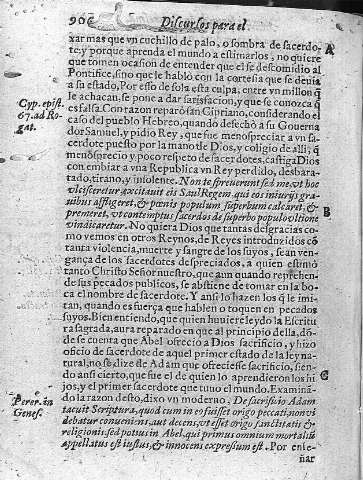 906 Discursos para el
xar mas que vn cuchillo de palo, o sombra de sacerdo- A
te, y porque aprenda el mundo a estimarlos, no quiere
que tomen ocasion de entender que el se descomidio al
Pontifice, sino que le hablò con la cortesia que se deuia
a su estado, Por esso de sola esta culpa, entre vn millon q̃
le achacan, se pone a dar satisfacion, y que se conozca q̃
es falsa. Con razon reparò san Cipriano, considerando el
Cyp. epist. 67. ad Rogat.
caso del pueblo Hebreo, quando desechò a su Gouerna
dor Samuel, y pidio Rey, que fue menospreciar a vn sa-
cerdote puesto por la mano de Dios, y coligio de alli, q̃
menosprecio y poco respeto de sacerdotes, castiga Dios
con embiar a vna Republica vn Rey perdido, desbara-
tado, tirano, y insolente. Non te spreuerunt sed me, vt hoc
vlcisceretur, excitauit eis Saul Regem, qui eos iniurijs gra-
uibus affligeret, & pœnis populum superbum calcaret, &
premeret, vt contemptus sacerdos de superbo populo vltione B
vindicaretur. No quiera Dios que tantas desgracias co
mo vemos en otros Reynos, de Reyes introduzidos cõ
tanta violencia, muerte y sangre de los suyos, sean ven-
gança de los sacerdotes despreciados, a quien estimò
tanto Christo Señor nuestro, que aun quando reprehen-
de sus pecados publicos, se abstiene de tomar en la bo-
ca el nombre de sacerdote. Y ansi lo hazen los q̃ le imi-
tan, quando es fuerça que hablen o toquen en pecados
suyos. Bien entiendo, que quien huuiere leydo la Escritu
ra sagrada, aura reparado en que al principio della, dõ-
de se cuenta que Abel ofrecio a Dios sacrificio, y hizo
oficio de sacerdote de aquel primer estado de la ley na-
tural, no se dize de Adam que ofreciesse sacrificio, sien-
do ansi cierto, que fue el de quien lo aprendieron los hi C
jos, y el primer sacerdote que tuuo el mundo. Examinã-
Perer. in Genes.
do la razon desto, dixo vn moderno, De sacrificio Adam
tacuit Scriptura, quod cum in eo fuisset origo peccati, non vi
debatur conueniens, aut decens, vt esset origo sanctitatis &
religionis, sed potius in Abel, qui primus omnium mortalium
appellatus est iustus, & innocens expressum est. Por ense-
ñar